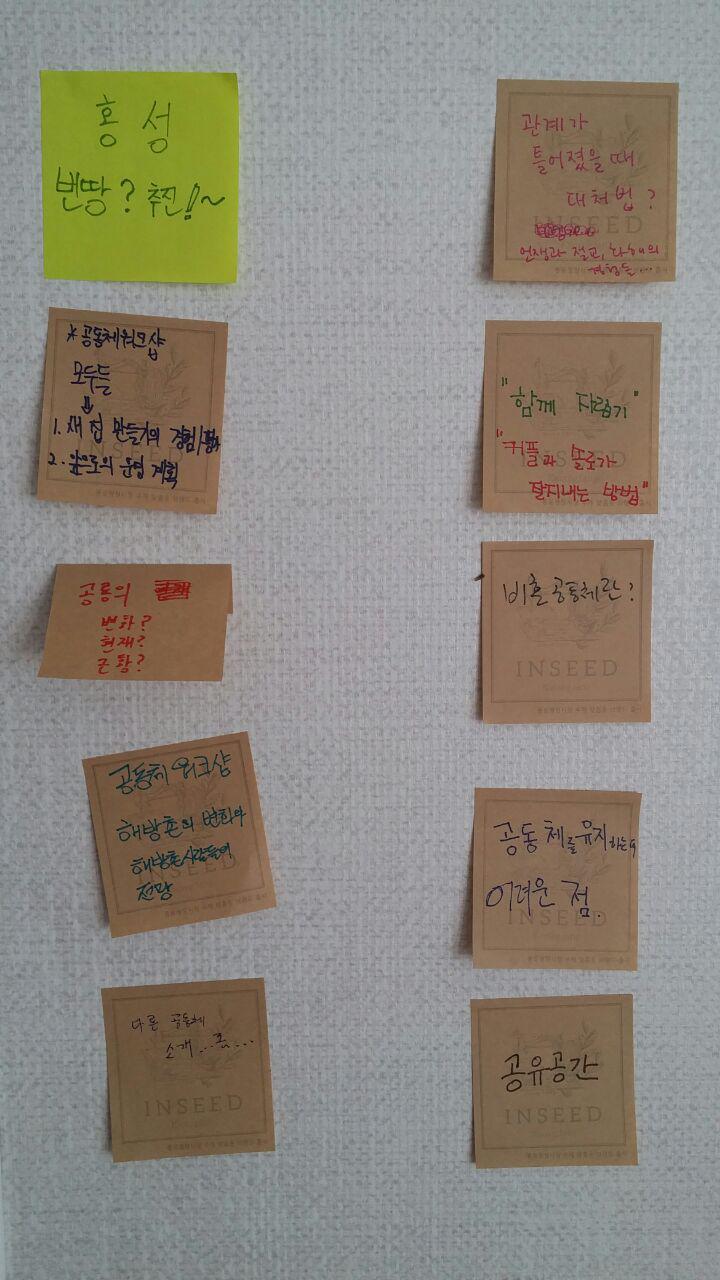 홍성
번땅? 추진!~
*공동체워크샵
모두들
↓
1. 새 집 만들기의 경험/
2. 앞으로의 운영 계획
공룡의
변화?
현재?
근황?
공동체 워크샵
해방촌의 변화와
해방촌사람들의
전망
INSEED
다른 공동체
소개...쫌...
INSEED
관계가
틀어졌을 때
대처법?
INSEED
언쟁과 절교, 화해의
경험들...
"함께 자립기"
"커플과 솔로가
잘지내는 방법"
비혼공동체란?
INSEED
공동체를 유지하는데
어려운 점.
INSEED
공유공간
INSEED